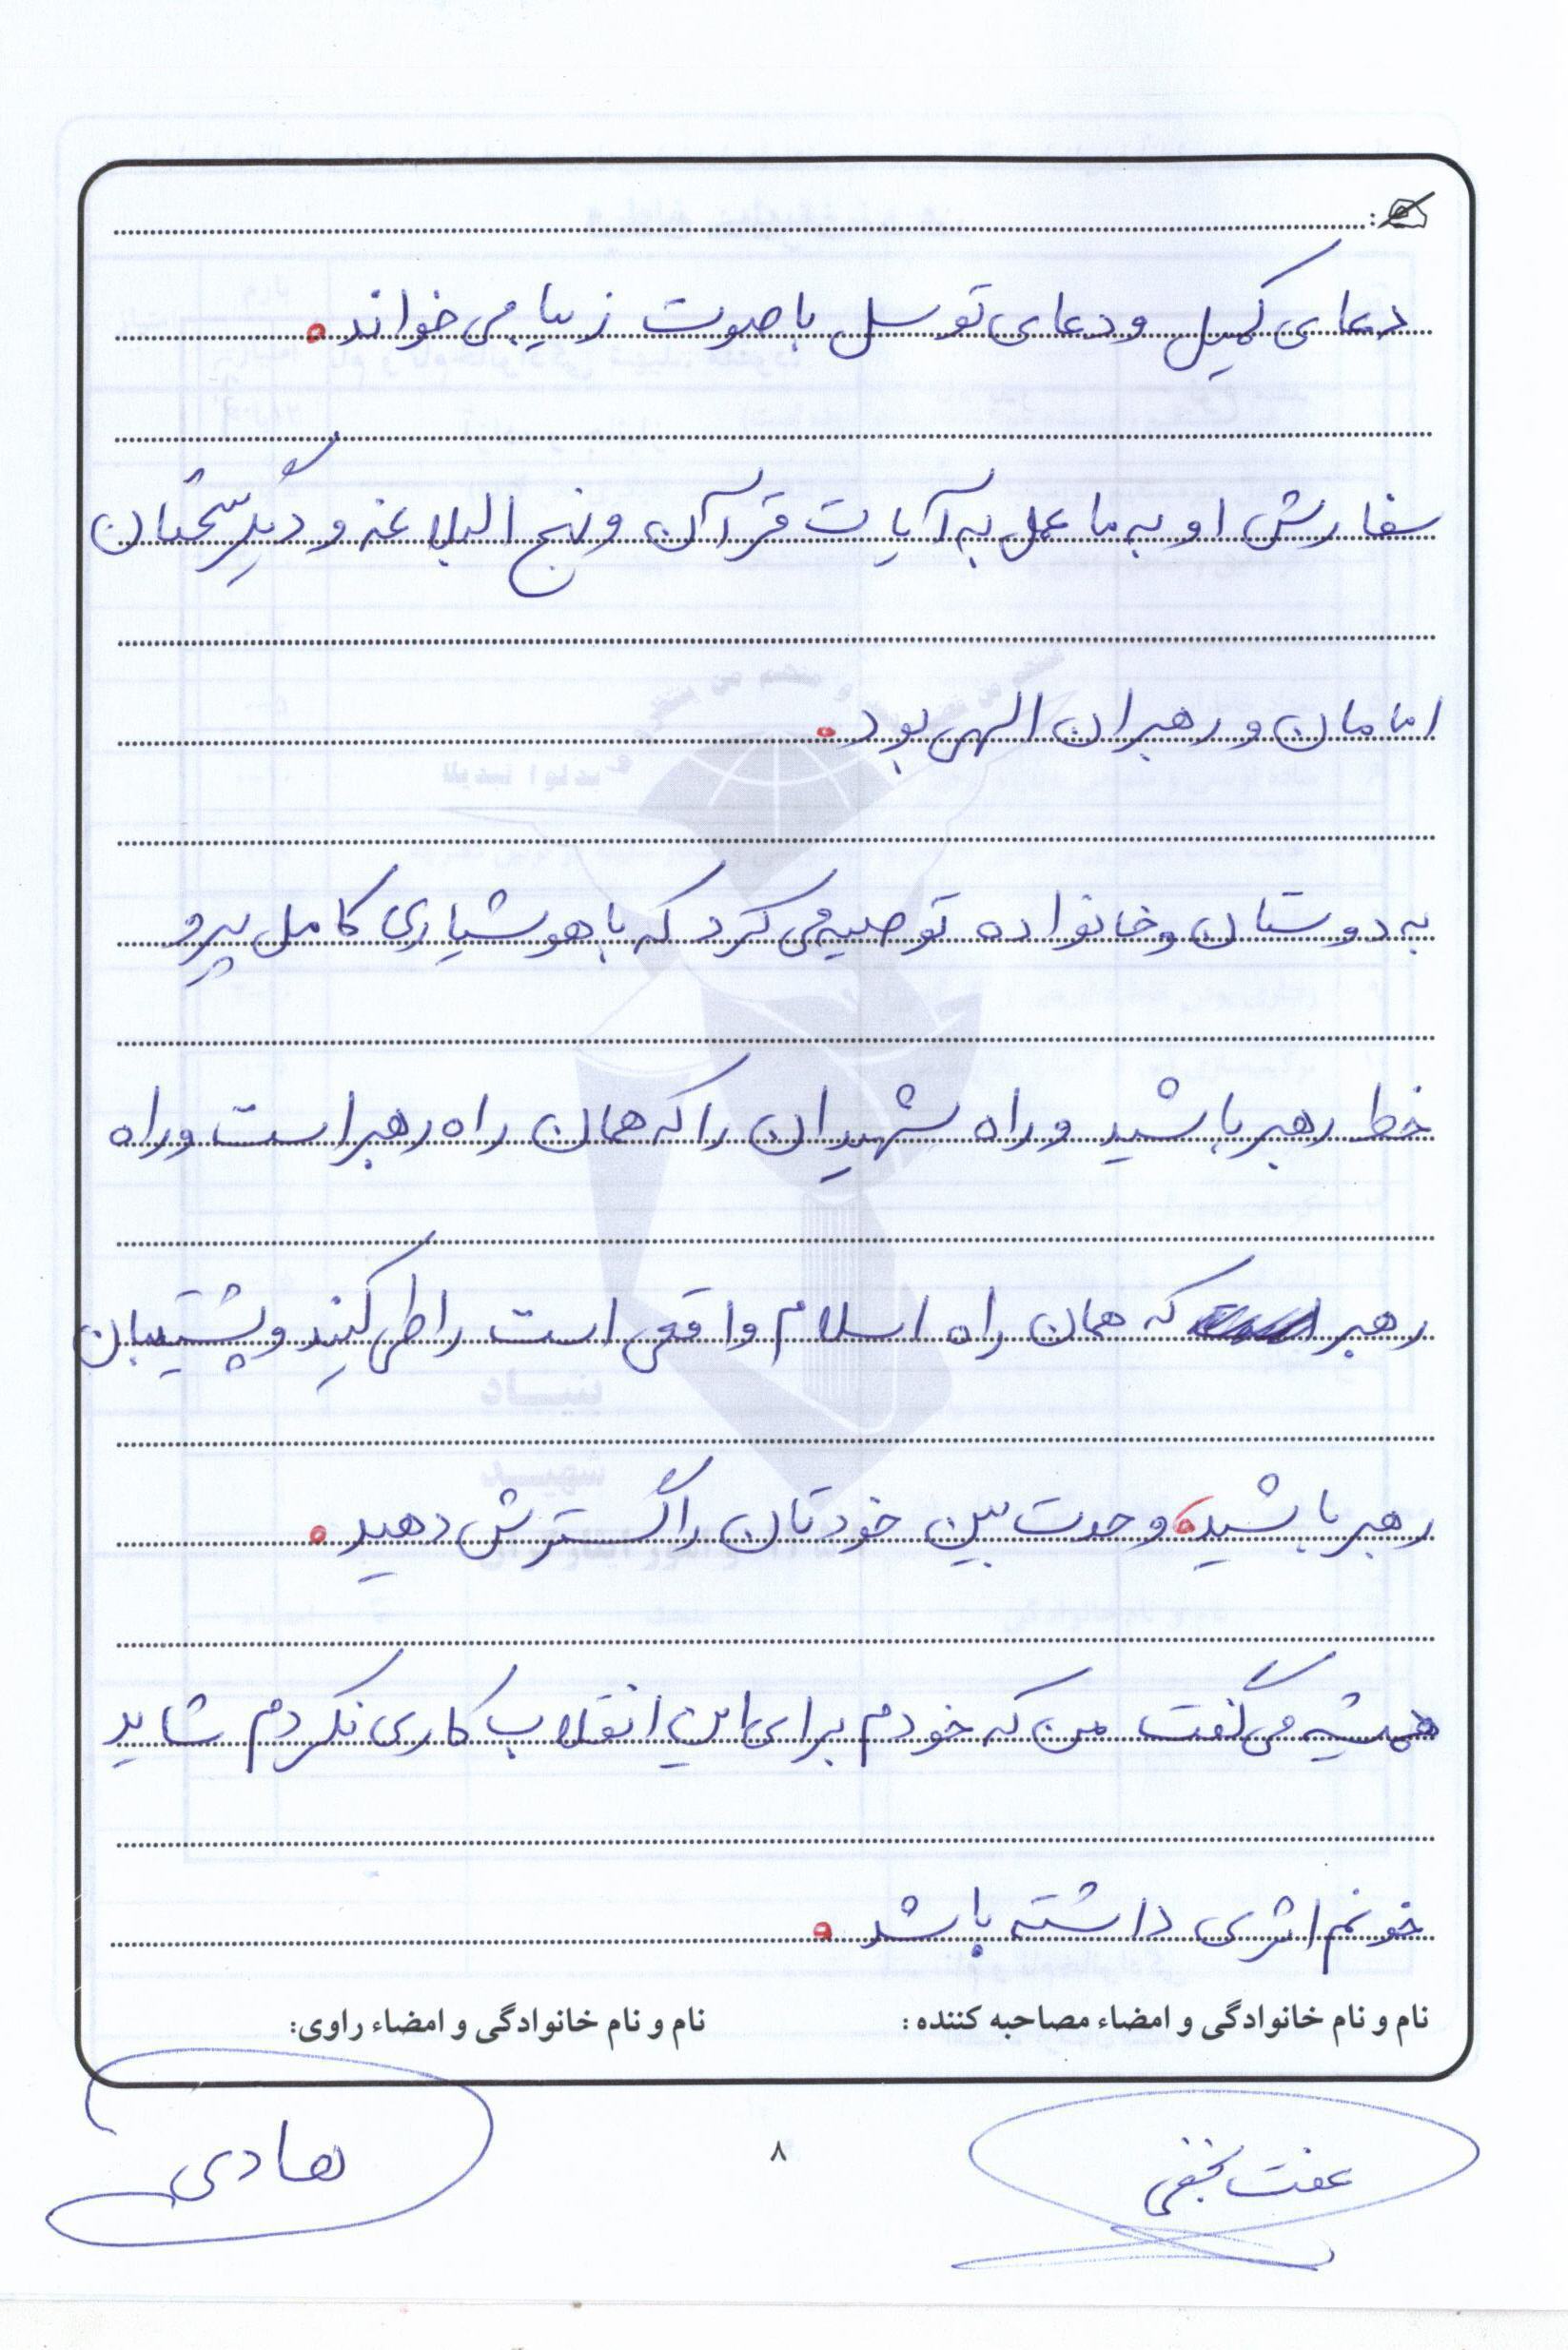 دعای کمیل و دعای توسل با صوت زیبا می خواند.
سفارش او به ما عمل به آیات قرآن و نهج البلاغه و دیگر سخنان
امامان و رهبران الهی بود.
به دوستان و خانواده توصیه می کرد که با هوشیاری کامل پیرو
خط رهبر باشید و راه شهیدان را که همان راه رهبر است و راه
رهبر که همان راه اسلام واقعی است را طی کنید و پشتیبان
رهبر باشید، وحدت بین خودتان را گسترش دهید.
همیشه می گفت من که خودم برای این انقلاب کاری نکردم شاید
خونم اثری داشته باشد.
نام و نام خانوادگی و امضاء مصاحبه کننده : نام و نام خانوادگی و امضاء راوی:
عفت نجفی ۸ هادی